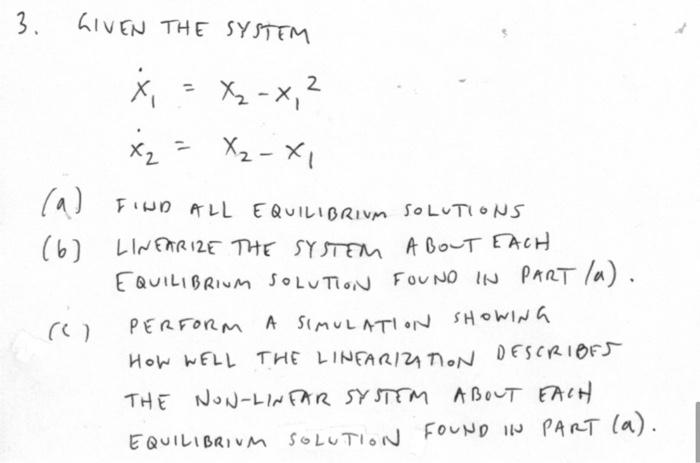 3. GIVEN THE SYSTEM
ẋ₁ = x₂ - x₁²
ẋ₂ = x₂ - x₁
(a) FIND ALL EQUILIBRIUM SOLUTIONS
(b) LINEARIZE THE SYSTEM ABOUT EACH
EQUILIBRIUM SOLUTION FOUND IN PART (a).
(c) PERFORM A SIMULATION SHOWING
HOW WELL THE LINEARIZATION DESCRIBES
THE NON-LINEAR SYSTEM ABOUT EACH
EQUILIBRIUM SOLUTION FOUND IN PART (a).